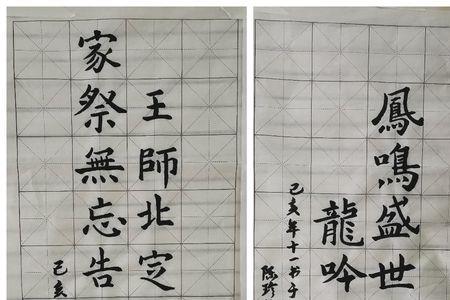 王師北定
家祭無忘告
己亥
鳳鳴盛世
龍吟
己亥年十一书于
陈珍